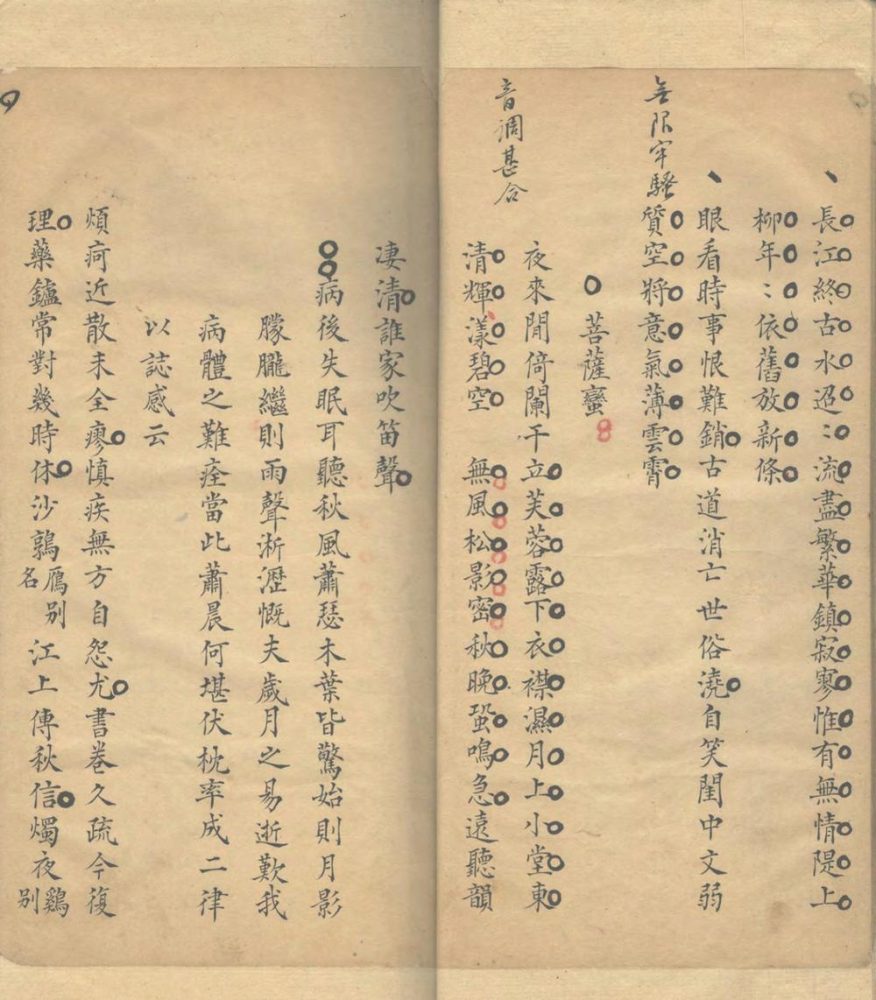 長江終古水迢〻流盡繁華鎮寂寥惟有無情隄上
柳年〻依舊放新條
眼看時事恨難銷古道消亡世俗澆自笑閨中文弱
無限牢騷
質空將意氣薄雲霄
菩薩蠻
音調甚合
夜來閒倚闌干立芙蓉露下衣襟濕月上小堂東
清輝漾碧空 無風松影密秋晚蛩鳴急遠聽韻
淒清誰家吹笛聲
病後失眠耳聽秋風蕭瑟木葉皆驚始則月影
朦朧繼則雨聲淅瀝慨夫歲月之易逝歎我
病體之難痊當此蕭晨何堪伏枕率成二律
以誌感云
煩疴近散未全瘳慎疾無方自怨尤書卷久疏今復
理藥鑪常對幾時休沙鶉雁別名江上傳秋信燭夜鷄別